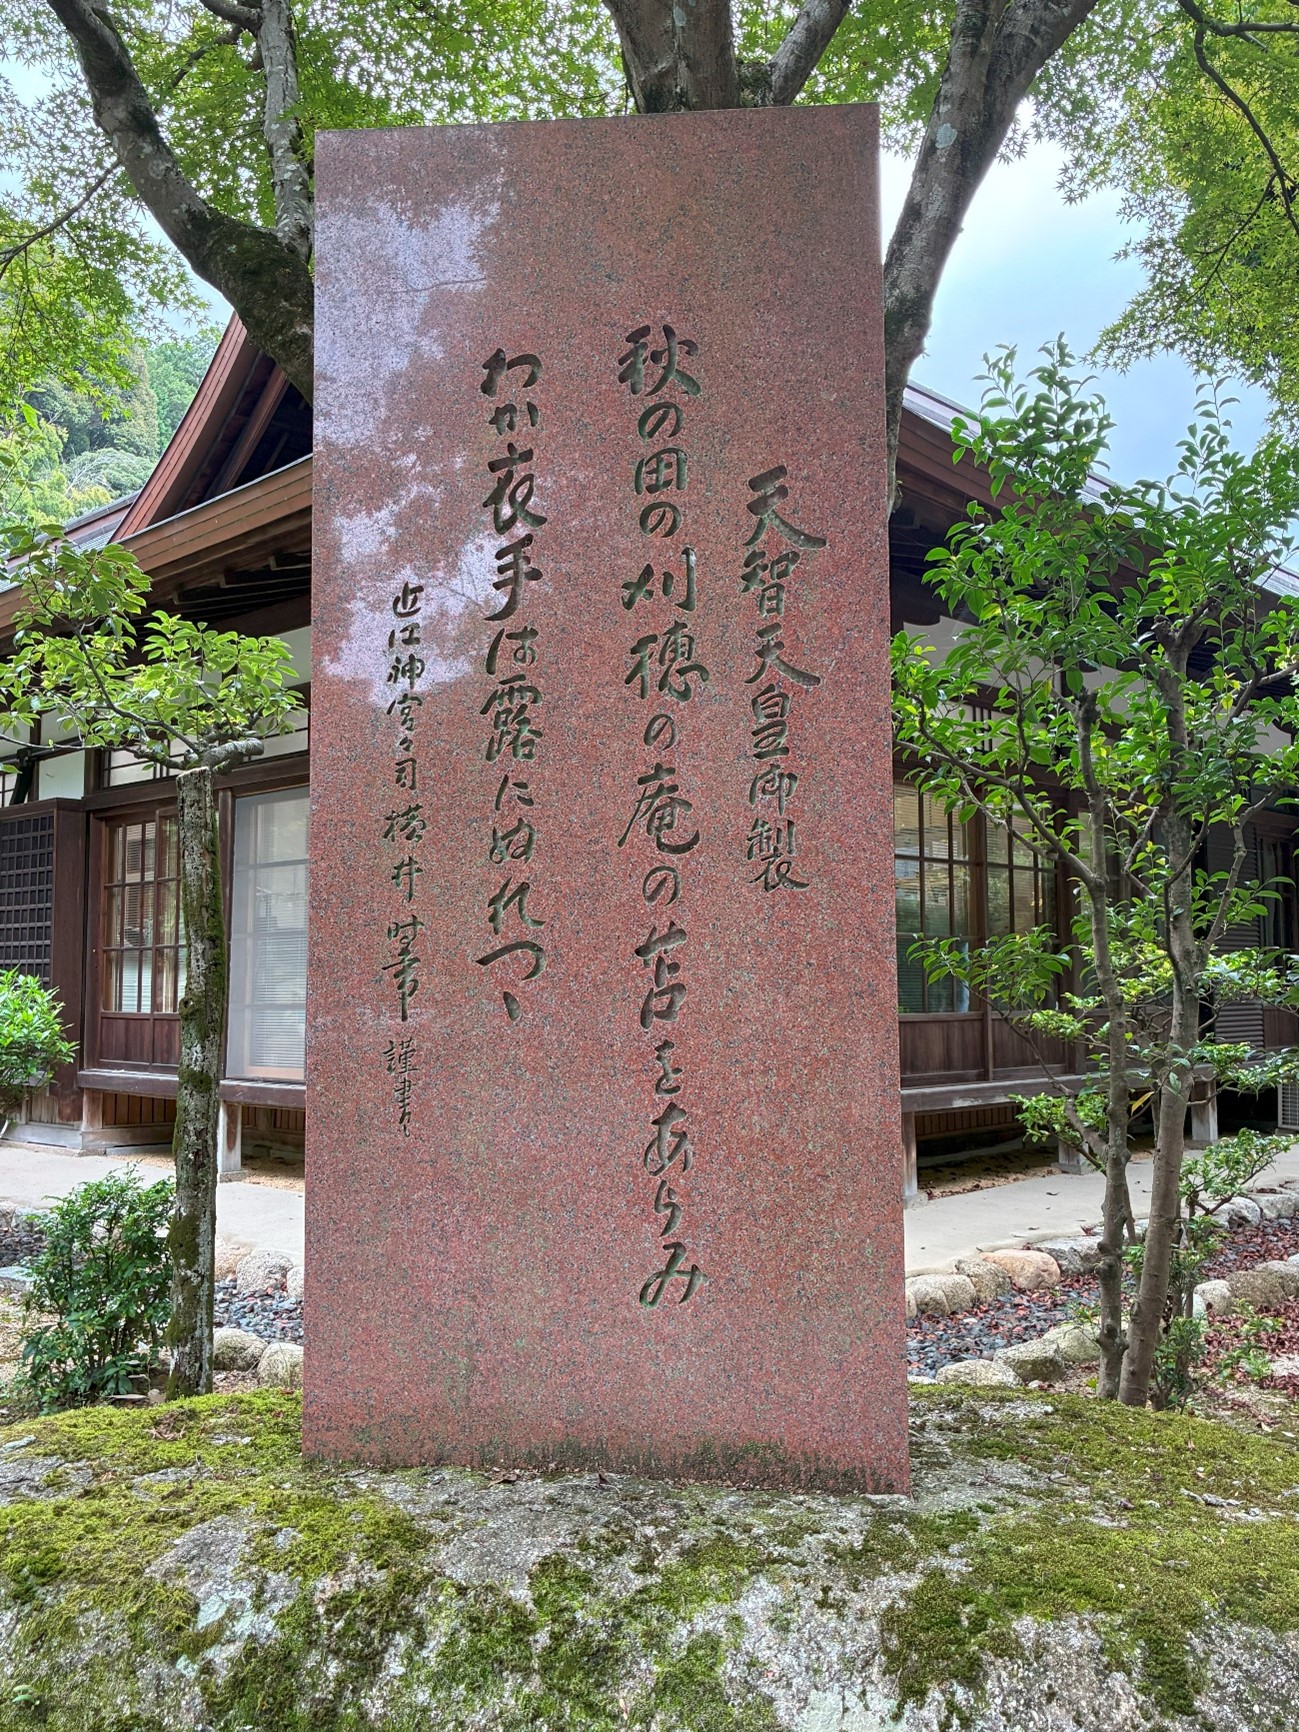 天智天皇御製
秋の田の刈穂の庵の苫をあらみ
わか衣手は露にぬれつゝ
近江神宮々司横井時常謹書